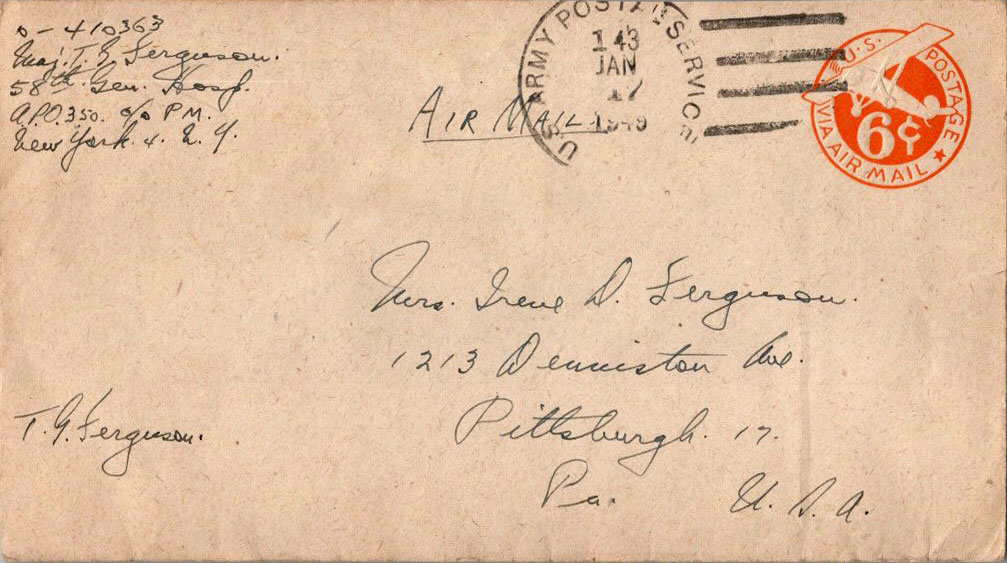 O-410363
Maj. T. G. Ferguson.
58th Gen. Hosp.
A.P.O. 350. c/o P.M.
New York. N. Y.
AIR MAIL
U.S. ARMY POSTAL SERVICE
143
JAN
17
U.S. POSTAGE
6¢
VIA AIR MAIL
Mrs. Irene D. Ferguson.
1213 Denniston Ave.
Pittsburgh. 17.
Pa. U. S. A.
T. G. Ferguson.